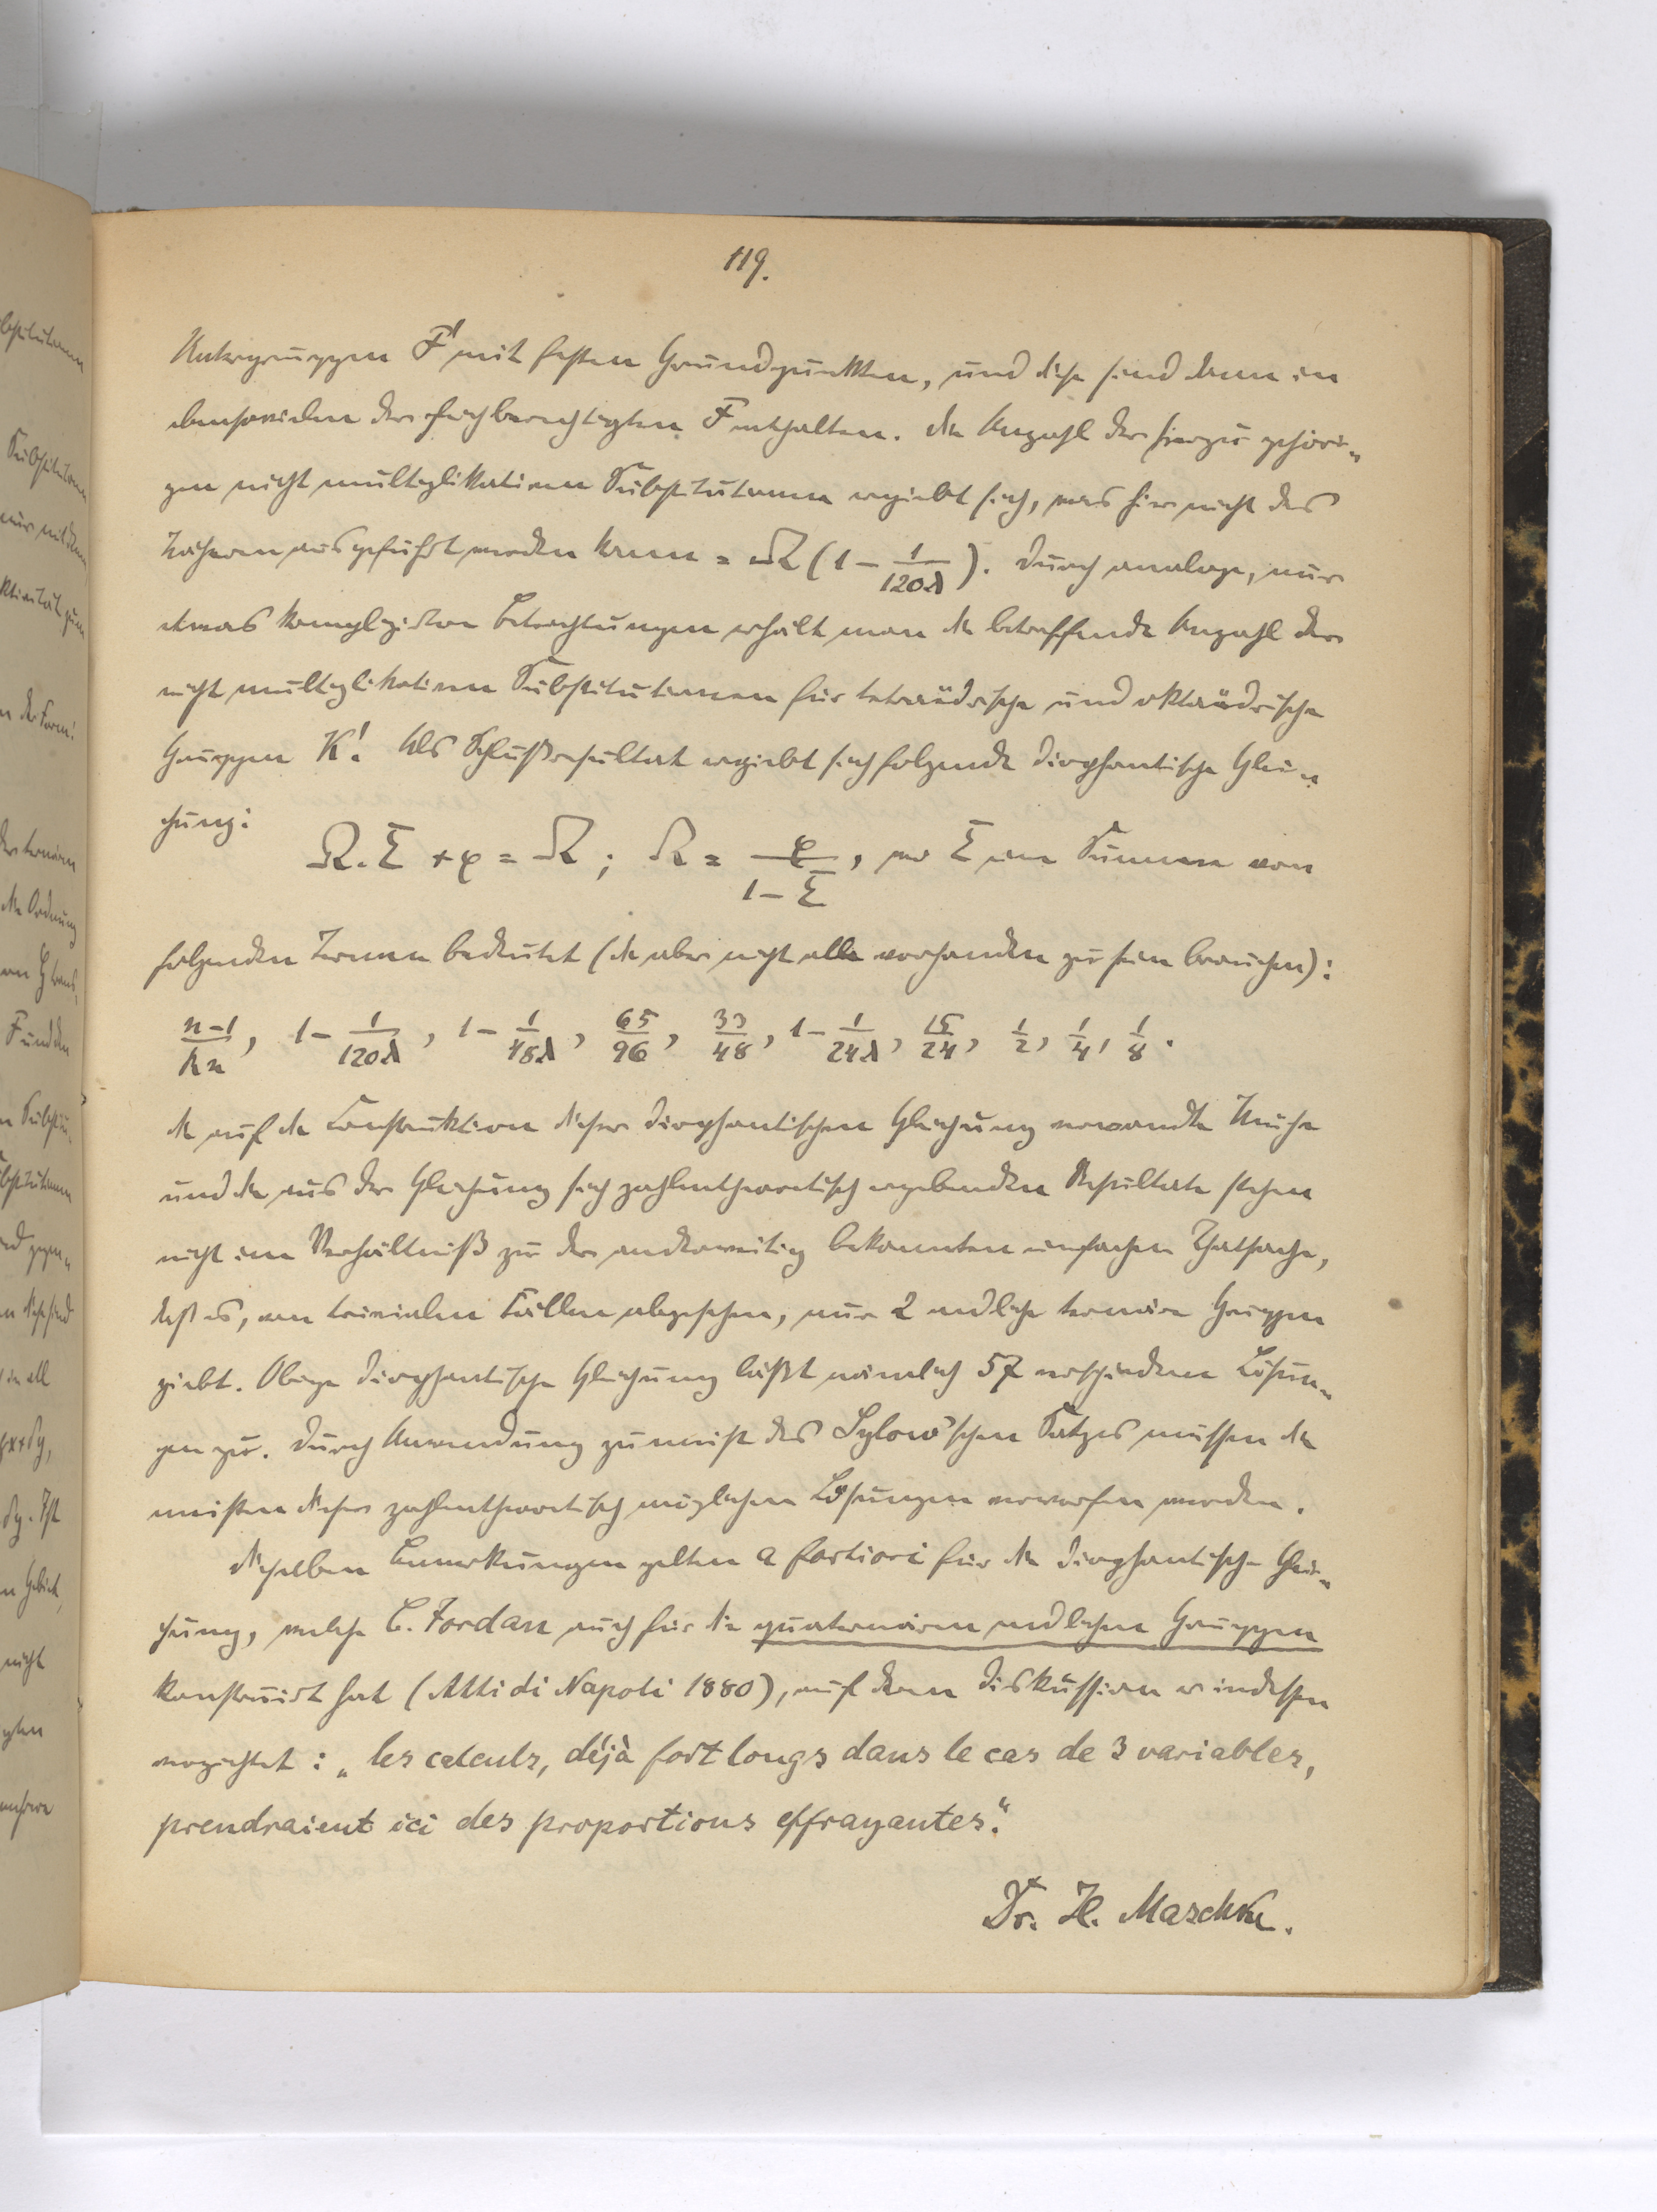 119.
Untergruppen F' mit festen Grundpunkten, und diese sind dann in
ebensovielen der gleichberechtigten F enthalten. Die Anzahl der hierzu gehöri„
gen nicht multiplikativen Substitutionen ergiebt sich, was hier nicht des
Näheren ausgeführt werden kann = Ω(1 - 1/120λ). Durch analoge, nur
etwas komplizirtere Betrachtungen erhält man die betreffende Anzahl der
nicht multiplikativen Substitutionen für tetraëdrische und oktaëdrische
Gruppen K'. Als Schlußresultat ergiebt sich folgende diophantische Glei„
chung:
Ω.Σ + φ = Ω ; Ω = φ/(1-Σ), wo Σ eine Summe von
folgenden Termen bedeutet (die aber nicht alle vorhanden zu sein brauchen):
(n-1)/kn, 1 - 1/120λ, 1 - 1/48λ, 65/96, 33/48, 1 - 1/24λ, 15/24, 1/2, 1/4, 1/8.
Die auf die Construktion dieser diophantischen Gleichung verwandte Mühe
und die aus der Gleichung sich zahlentheoretisch ergebenden Resultate stehen
nicht im Verhältniß zu der anderweitig bekannten einfachen Thatsache,
daß es, von trivialen Fällen abgesehen, nur 2 endliche ternäre Gruppen
giebt. Obige diophantische Gleichung läßt nämlich 57 verschiedene Lösun„
gen zu. Durch Anwendung zumeist des Sylow'schen Satzes müssen die
meisten dieser zahlentheoretisch möglichen Lösungen verworfen werden.
Dieselben Bemerkungen gelten a fortiori für die diophantische Glei„
chung, welche C. Jordan auch für die quaternären endlichen Gruppen
konstruirt hat (Atti di Napoli 1880), auf deren Diskussion er indessen
verzichtet: „les calculs, déjà fort longs dans le cas de 3 variables,
prendraient ici des proportions effrayantes.“
Dr. H. Maschke.